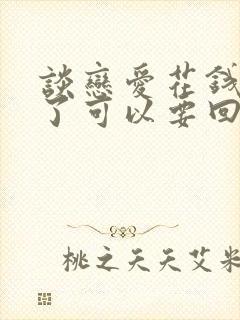 談戀愛花錢
了可以要回
桃之天天艾米